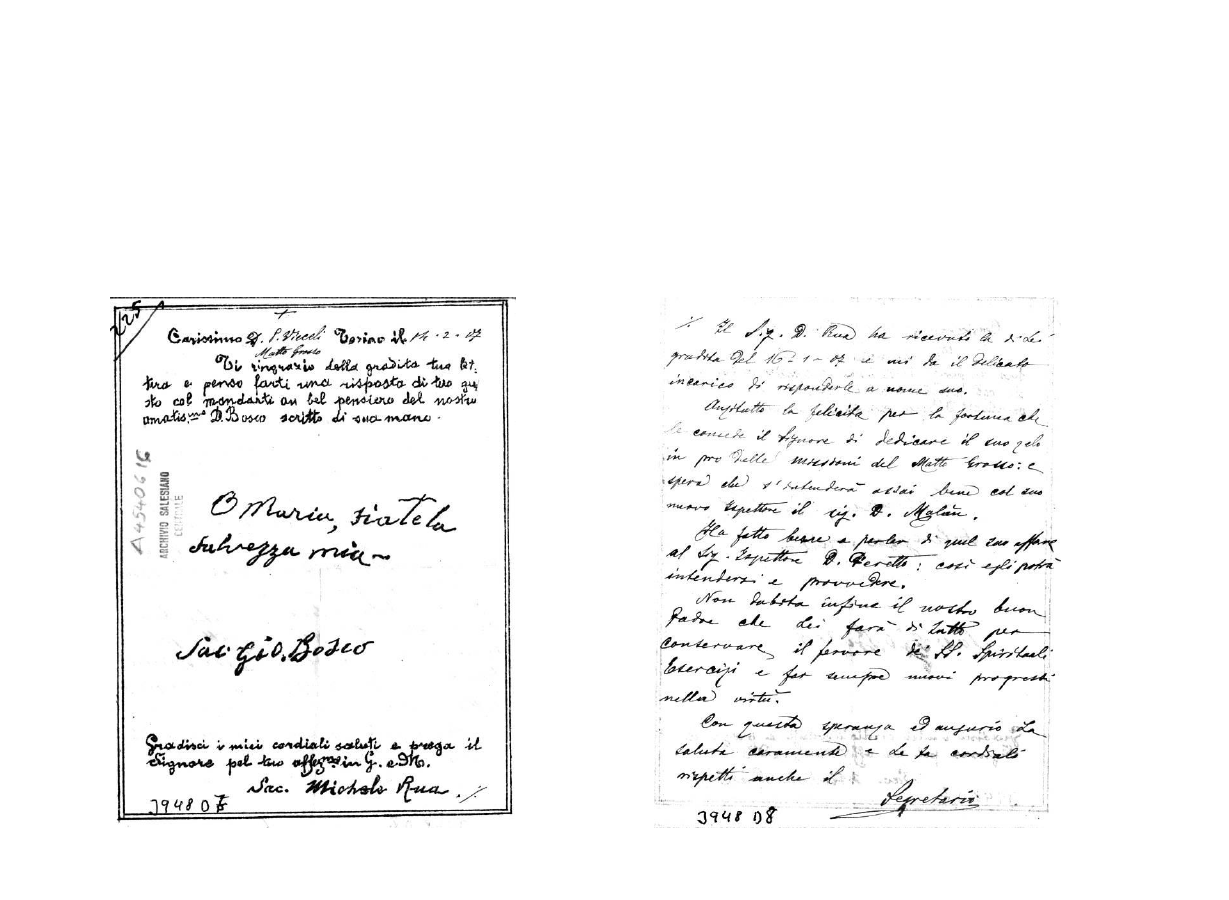 225
Carissimo D. Torino il 14-2-07
Matto Grosso
Ti ringrazio della gradita tua let:
tera e penso farti una risposta di tuo gu
sto col mandarti un bel pensiero del nostro
amatis.mo D. Bosco scritto di sua mano.
A4540616
ARCHIVIO SALESIANO
CENTRALE
O Maria, siate la
salvezza mia
Sac. Gio. Bosco
Gradisci i miei cordiali saluti e prega il
Signore pel tuo affez.mo in G. e M.
Sac. Michele Rua ./.
3948 D
./. Il Sig. D. Rua ha ricevuto la di Lei
gradita del 16-1-07 e mi dà il delicato
incarico di risponderle a nome suo.
Anzitutto la felicita per la fortuna che
le concede il Signore di dedicare il suo zelo
in pro delle missioni del Matto Grosso: e
spera che s'intenderà assai bene col suo
nuovo Ispettore il sig. D. Malan.
Ha fatto bene a parlar di quel suo affare
al Sig. Ispettore D. Peretto: così egli potrà
intendersi e provvedere.
Non dubita infine il nostro buon
Padre che Lei farà di tutto per
conservare il fervore dei SS. Spirituali
Esercizi e far sempre nuovi progressi
nella virtù.
Con questa speranza ed augurio La
saluta caramente e Le fa cordiali
rispetti anche il
Segretario
3948 D8